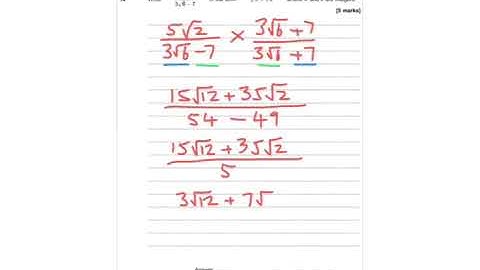 [5 marks]
5√2 / (3√6 − 7) × (3√6 + 7) / (3√6 + 7)
(15√12 + 35√2) / (54 − 49)
(15√12 + 35√2) / 5
3√12 + 7√